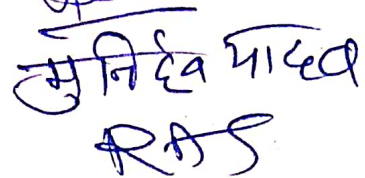 मुनिदेव यादव
RAS